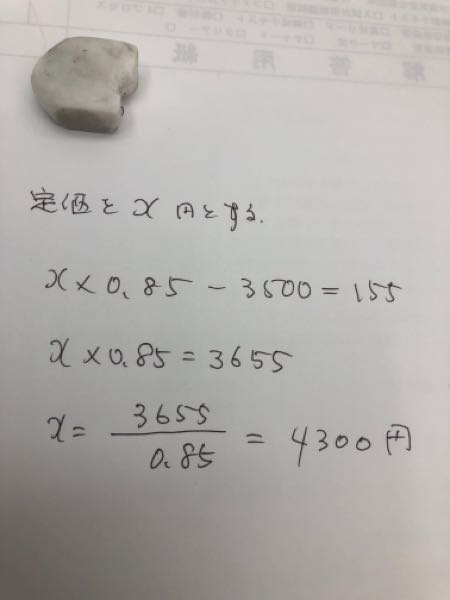 定価を x 円とする.
x × 0.85 - 3500 = 155
x × 0.85 = 3655
x = 3655 / 0.85 = 4300 円
解答用紙